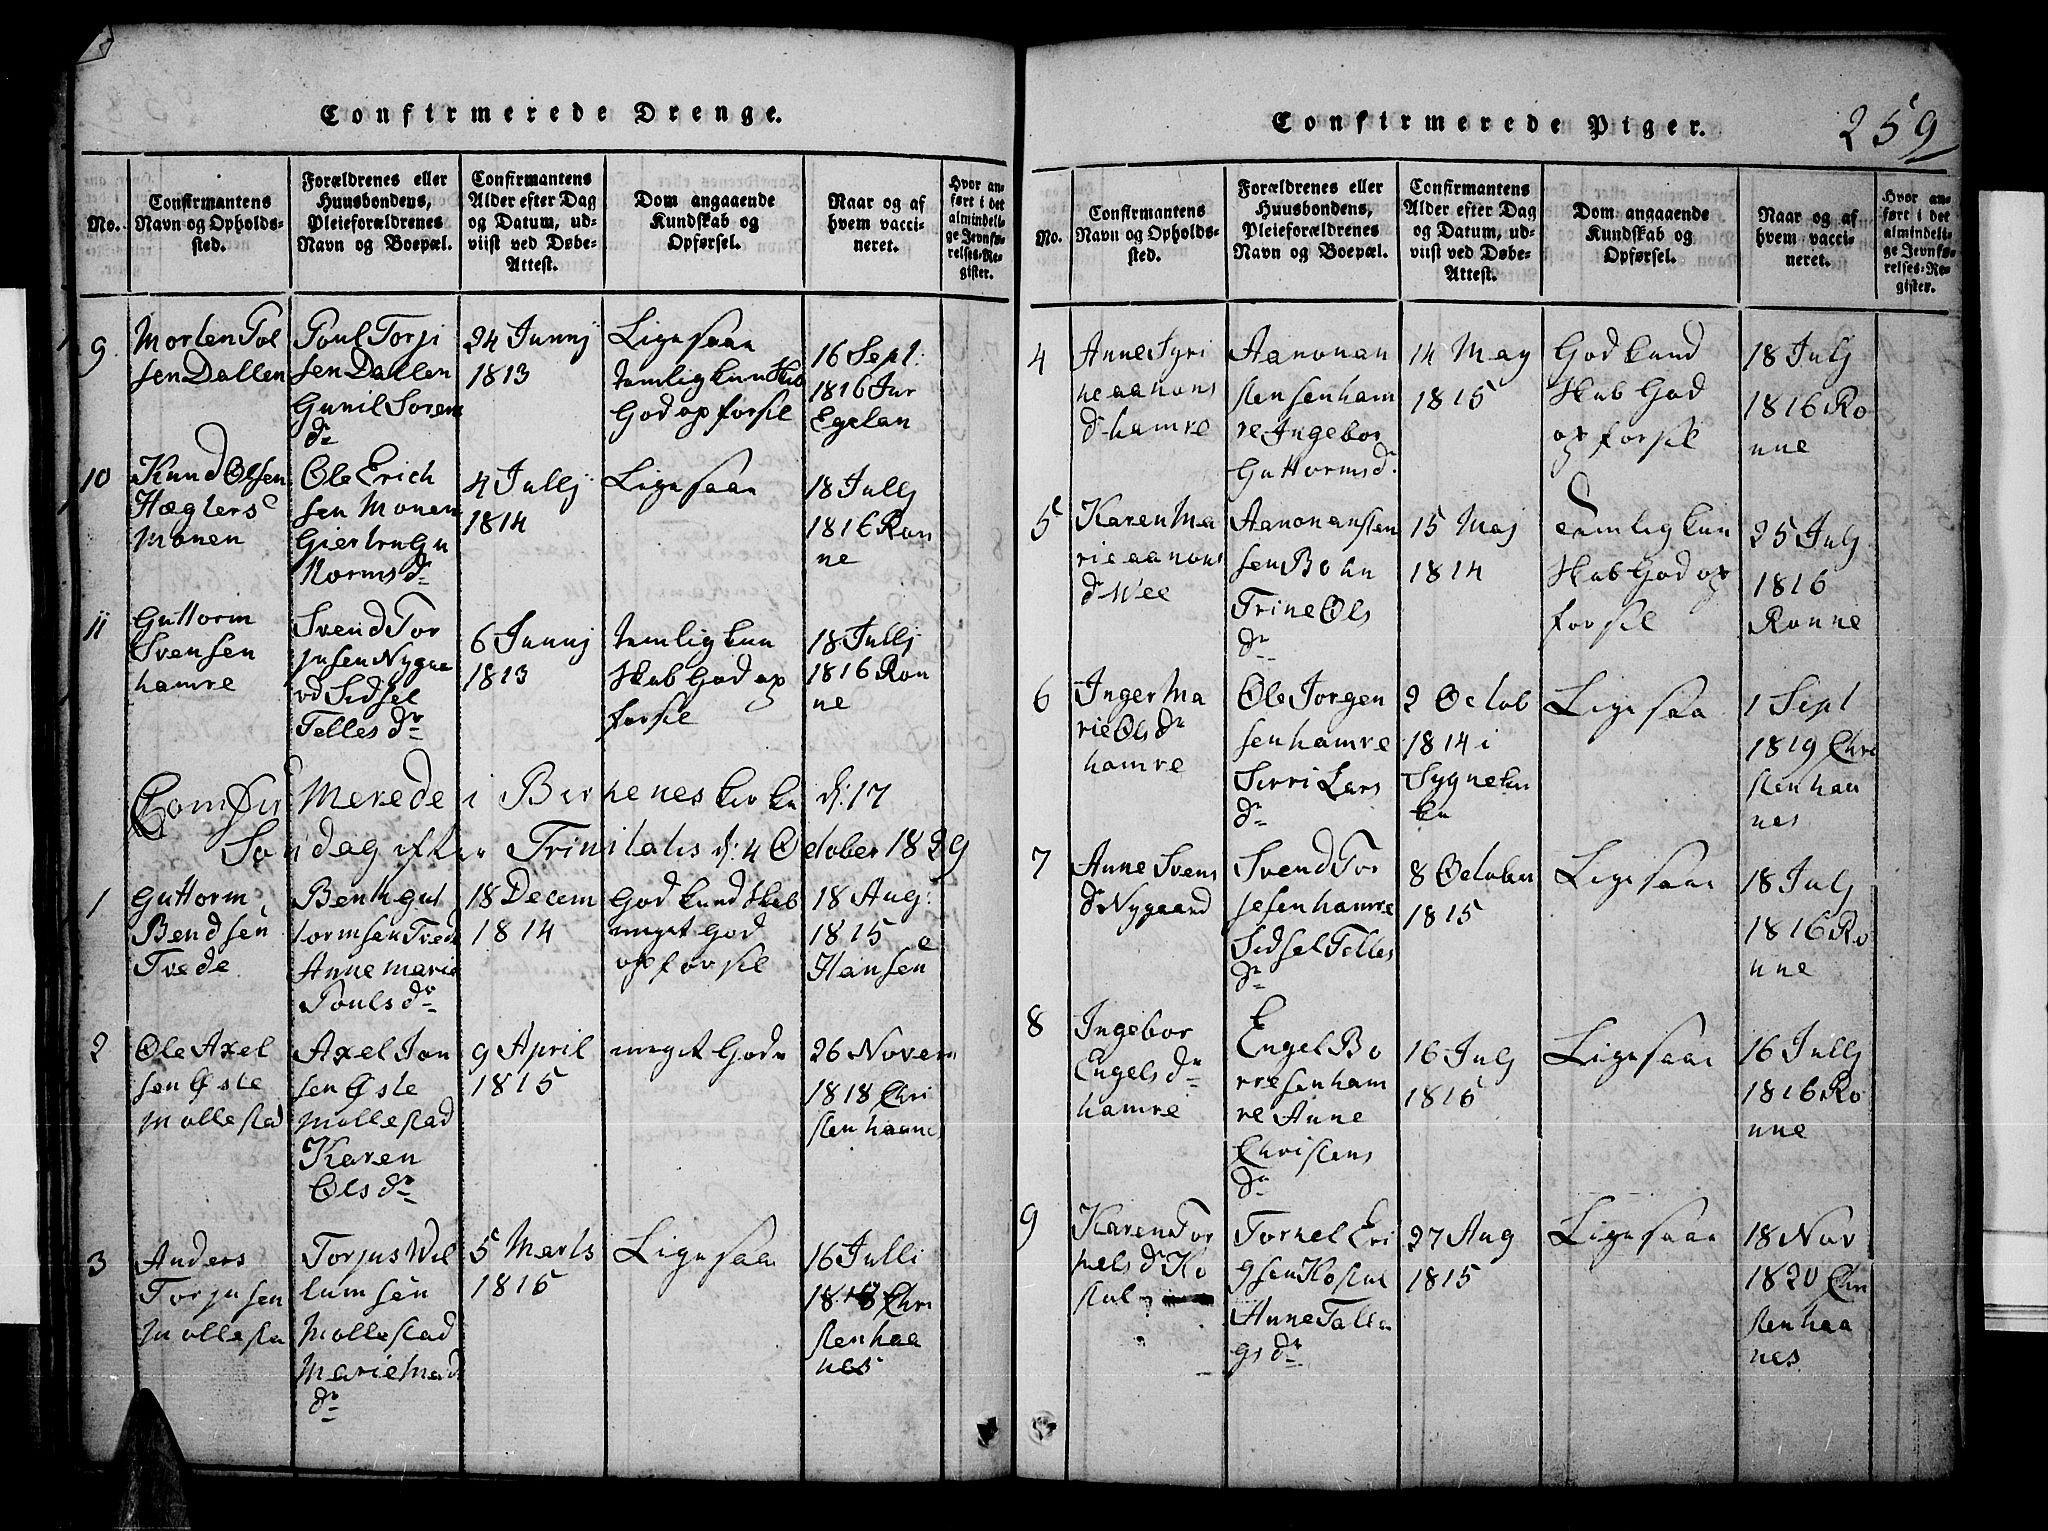 Confirmerede Drenge.
No.
Confirmantens
Navn og Opholds-
sted.
Forældrenes eller
Huusbondens,
Pleieforældrenes
Navn og Boepæl.
Confirmantens
Alder efter Dag
og Datum, ud-
viist ved Døbe-
Attest.
Dom angaaende
Kundskab og
Opførsel.
Naar og af
hvem vacci-
neret.
Hvor an-
ført i det
almindeli-
ge Jevnfø-
relses-Re-
gister.
9
Morten Pol
sen Dallen
Poul Torji
sen Dallen
Gunil Soren
dr
24 Junnj
1813
Ligesaa
temlig kunskab
God opforsel
16 Sept:
1816 Jur
Egelan
10
Knud Olsen
Hæglers
Monen
Ole Erich
sen Monen
Giertru Gu
Normsdr
4 Jullj
1814
Ligesaa
18 Jullj
1816 Ron
ne
11
Guttorm
Svensen
hamre
Svend Tor
jusen Nygne
vd Sidsel
Tellesdr
6 Junnj
1813
temlig kun
skab God op
forsel
18 Jullj
1816 Ron
ne
Confirmerede i Birkenes kirke d: 17
Søndag efter Trinitatis d: 4 October 1829
1
Guttorm
Bendsen
Tvede
Benth gut
tormsen Tvede
Anne marie
Poulsdr
18 Decem
1814
God kundskab
meget God
opforsel
18 Aug:
1815
Hansen
2
Ole Axel
sen Øste
Mollestad
Axel Jon
sen Øste
Mollestad
Karen
Olsdr
9 April
1815
meget Gode
26 Novem
1818 Chri
stenhaanes
3
Anders
Torjusen
Mollesta
Torjus Wil
lumsen
Mollestad
Marie Mad
dr
5 Marts
1815
Ligesaa
16 Julli
1818 Chri
stenhaa
nes
Confirmerede Piger.
259
No.
Confirmantens
Navn og Opholds-
sted.
Forældrenes eller
Huusbondens,
Pleieforældrenes
Navn og Boepæl.
Confirmantens
Alder efter Dag
og Datum, ud-
viist ved Døbe-
Attest.
Dom angaaende
Kundskab og
Opførsel.
Naar og af
hvem vacci-
neret.
Hvor an-
ført i det
almindeli-
ge Jevnfø-
relses-Re-
gister.
4
Anne Syri
ne aanons
d hamre
Aanonan
stensenham
re Ingebor
Guttormsdr
14 May
1815
God kund
skab God
opforsel
18 Julj
1816 Ro
nne
5
Karen Ma
rie aanons
d Wee
Aanonansten
sen Bohn
Trine Ols
dr
15 Maj
1814
Temlig kun
skab God op
forsel
25 Julj
1816
Ronne
6
Inger Ma
rie Olsdr
hamre
Ole Jorgen
senhamre
Sirri Lars
dr
2 Octob
1814 i
Sygnekir
ke
Ligesaa
1 Sept
1819 Chri
stenhaa
nes
7
Anne Svens
d Nygaard
Svend Tor
jesenhamre
Sidsel Telles
dr
8 October
1815
Ligesaa
18 Julj
1816 Ro
nne
8
Ingebor
Engelsdr
hamre
Engel Bo
rresenham
re Anne
Christens
dr
16 Julj
1815
Ligesaa
16 Jullj
1816 Ro
nne
9
Karen Tor
kelsdr Ko
stol
Torkel Eri
gsen Kostol
Anne Talla
gsdr
27 Aug
1815
Ligesaa
18 Nov
1820 Chri
stenhaa
nes